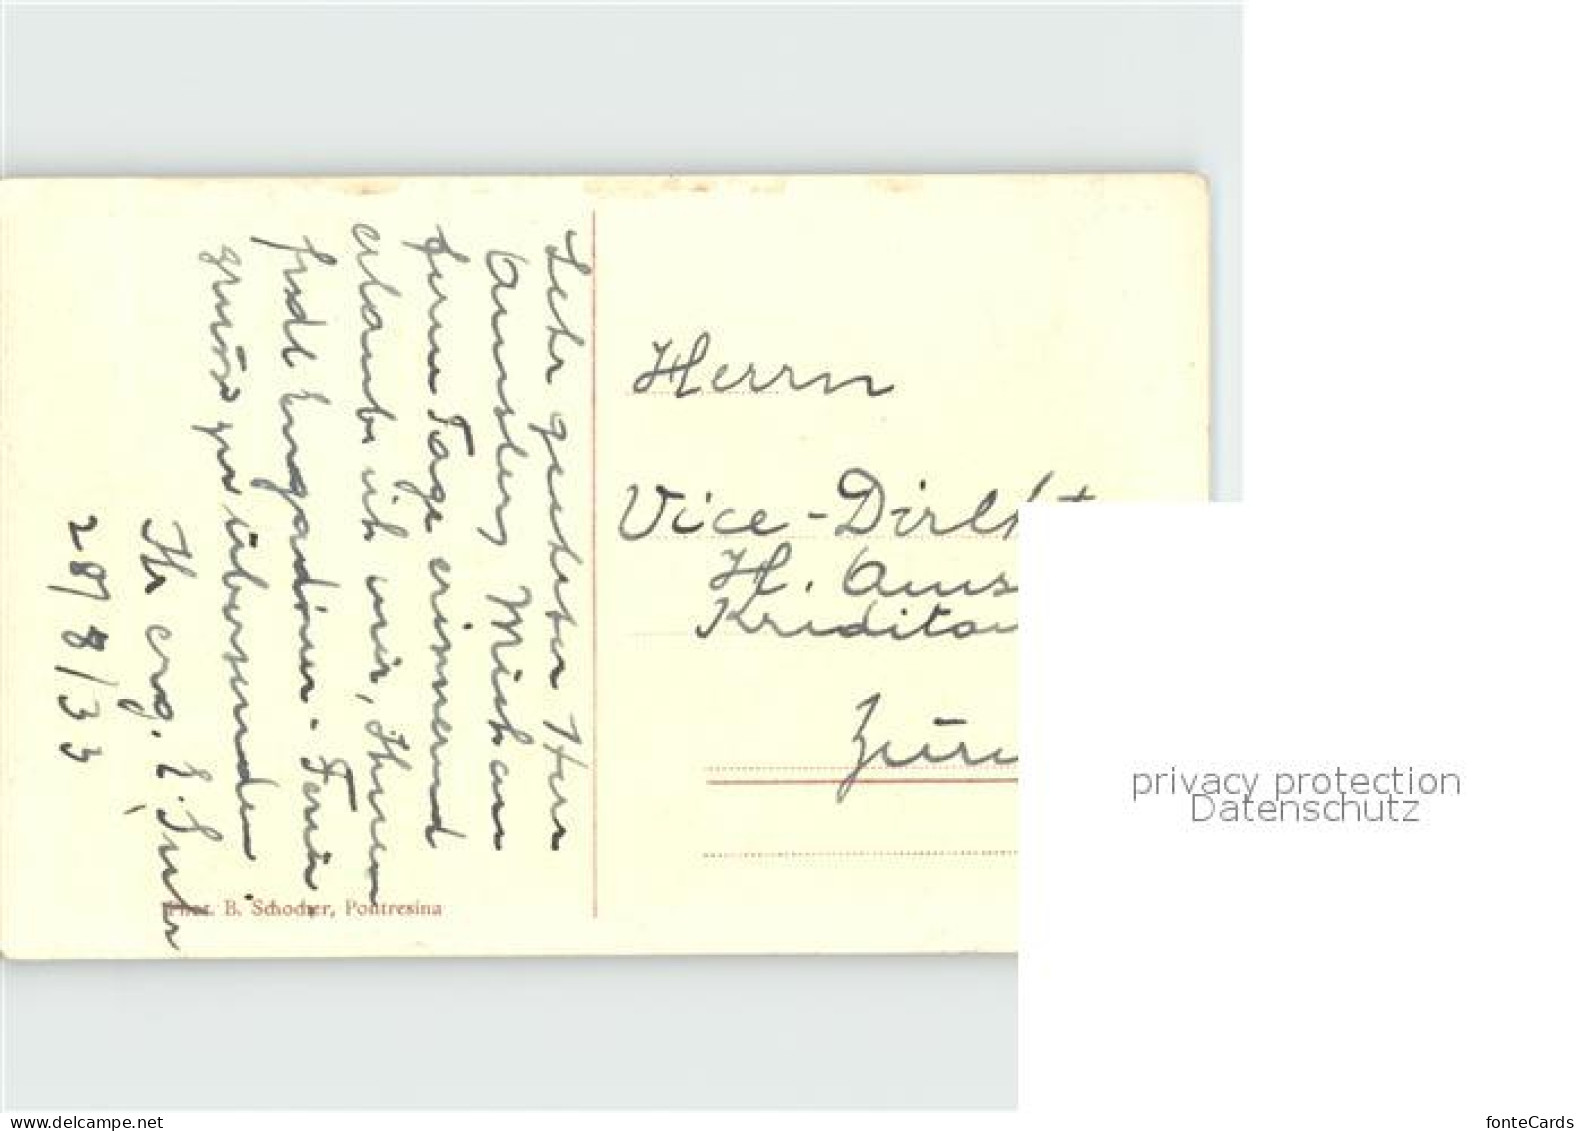 Sehr geehrter Herr
Amsler, Mich an
ferne Tage erinnernd
erlaube ich mir, Ihnen
frdl Engadiner-Ferien
grüsse zu übersenden.
Ihr erg. E.
28/8/33
Phot. B. Schocher, Pontresina
Herrn
Vice-Direkt
H. Ams
Kredita
Züri
privacy protection
Datenschutz
www.delcampe.net
fonteCards